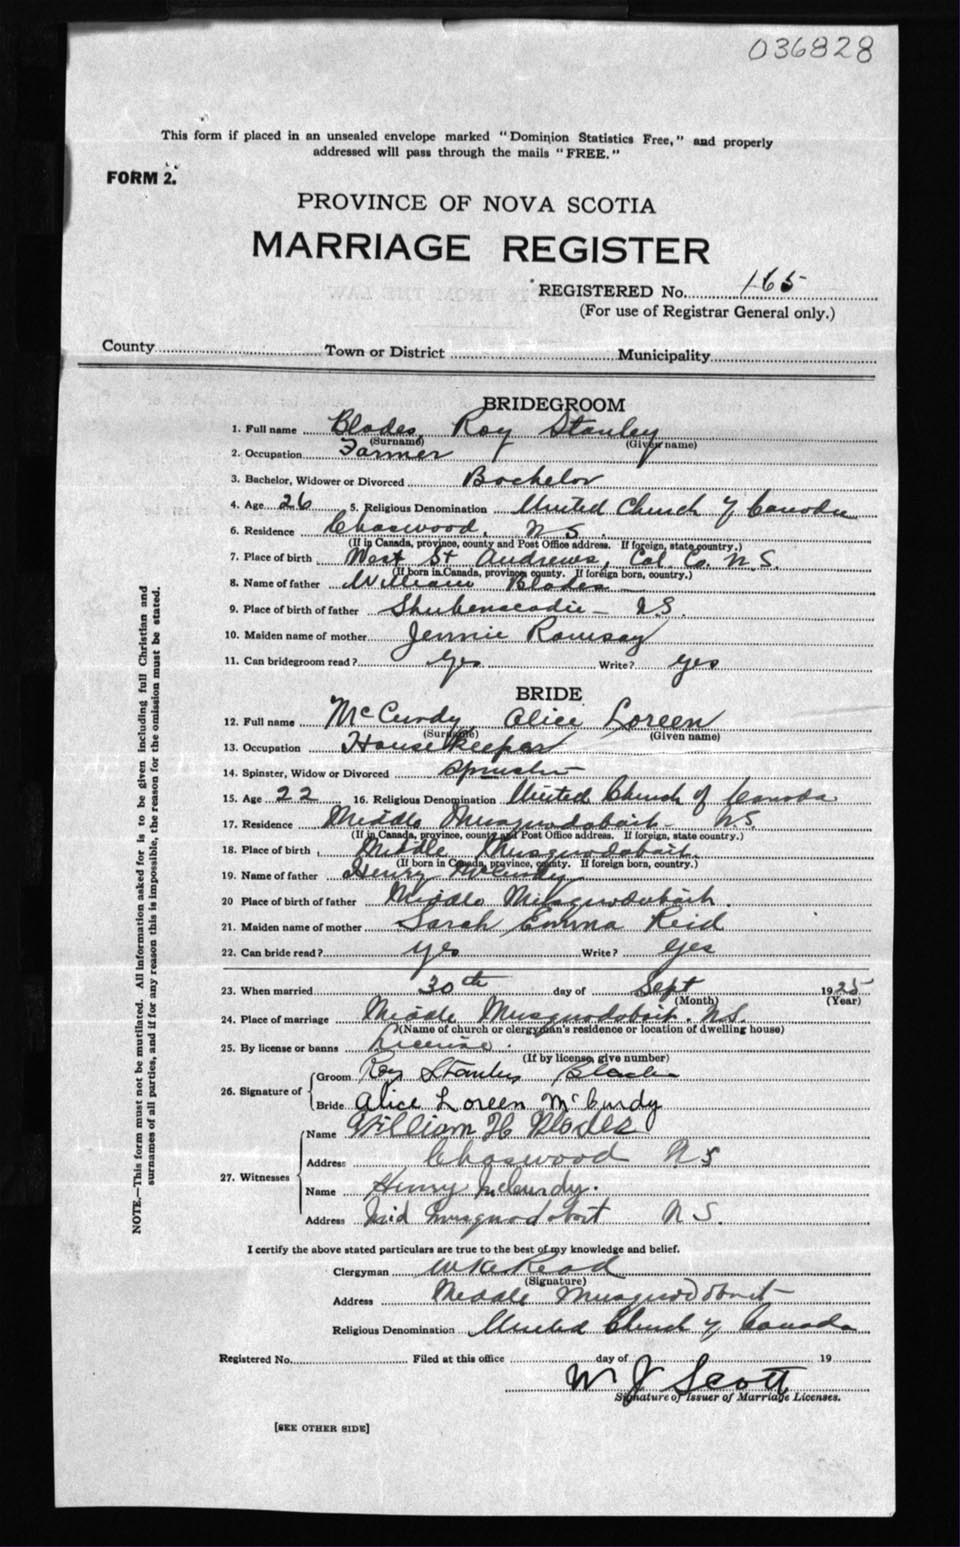 036828
This form if placed in an unsealed envelope marked "Dominion Statistics Free," and properly
addressed will pass through the mails "FREE."
FORM 2.
PROVINCE OF NOVA SCOTIA
MARRIAGE REGISTER
REGISTERED No. 165
(For use of Registrar General only.)
County Town or District Municipality
BRIDEGROOM
1. Full name Blades, Roy Stanley
(Surname) (Given name)
2. Occupation Farmer
3. Bachelor, Widower or Divorced Bachelor
4. Age 26 5. Religious Denomination United Church of Canada
6. Residence Chaswood, N S.
(If in Canada, province, county and Post Office address. If foreign, state country.)
7. Place of birth West St Andrews, Col. Co. N.S.
(If born in Canada, province, county. If foreign born, country.)
8. Name of father William Blades
9. Place of birth of father Shubenacadie - N.S.
10. Maiden name of mother Jennie Ramsay
11. Can bridegroom read? Yes Write? yes
BRIDE
12. Full name McCurdy, Alice Loreen
(Surname) (Given name)
13. Occupation House keeper
14. Spinster, Widow or Divorced Spinster
15. Age 22 16. Religious Denomination United Church of Canada
17. Residence Middle Musquodoboit - N.S.
(If in Canada, province, county and Post Office address. If foreign, state country.)
18. Place of birth Middle Musquodoboit.
(If born in Canada, province, county. If foreign born, country.)
19. Name of father Henry McCurdy
20 Place of birth of father Middle Musquodoboit.
21. Maiden name of mother Sarah Emma Reid
22. Can bride read? yes Write? yes
23. When married 30th day of Sept 1925
(Month) (Year)
24. Place of marriage Middle Musquodoboit. N.S.
(Name of church or clergyman's residence or location of dwelling house)
25. By license or banns License.
(If by license, give number)
26. Signature of Groom Roy Stanley Blades
Bride Alice Loreen McCurdy
27. Witnesses Name William H Blades
Address Chaswood N S
Name Henry McCurdy.
Address Mid Musquodoboit N S.
I certify the above stated particulars are true to the best of my knowledge and belief.
Clergyman Read
(Signature)
Address Middle Musquodoboit
Religious Denomination United Church of Canada
Registered No. Filed at this office day of 19
W J Scott
Signature of Issuer of Marriage Licenses.
[SEE OTHER SIDE]
NOTE.—This form must not be mutilated. All information asked for is to be given including full Christian and
surnames of all parties, and if for any reason this is impossible, the reason for the omission must be stated.